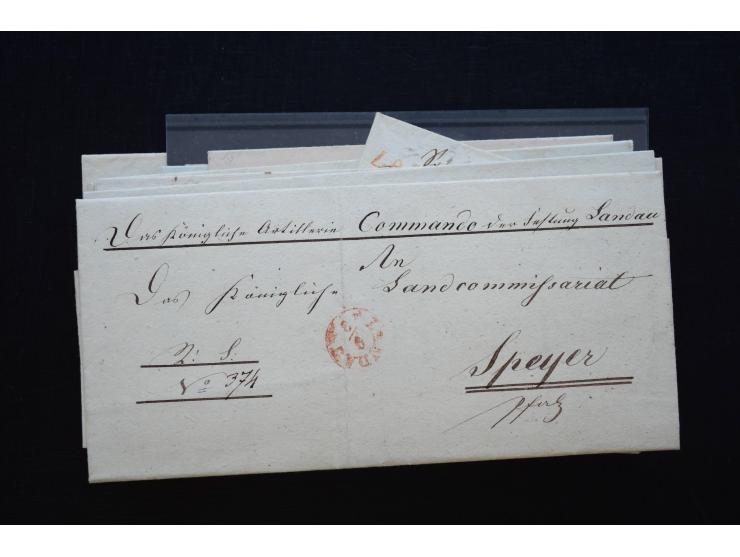 Das Königliche Artillerie Commando der Festung Landau
An
Das Königliche Landcommissariat
LANDAU
R: S.
No 374
Speyer
Pfalz